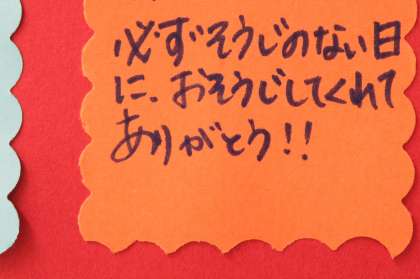 必ずそうじのない日
に、おそうじしてくれて
ありがとう!!